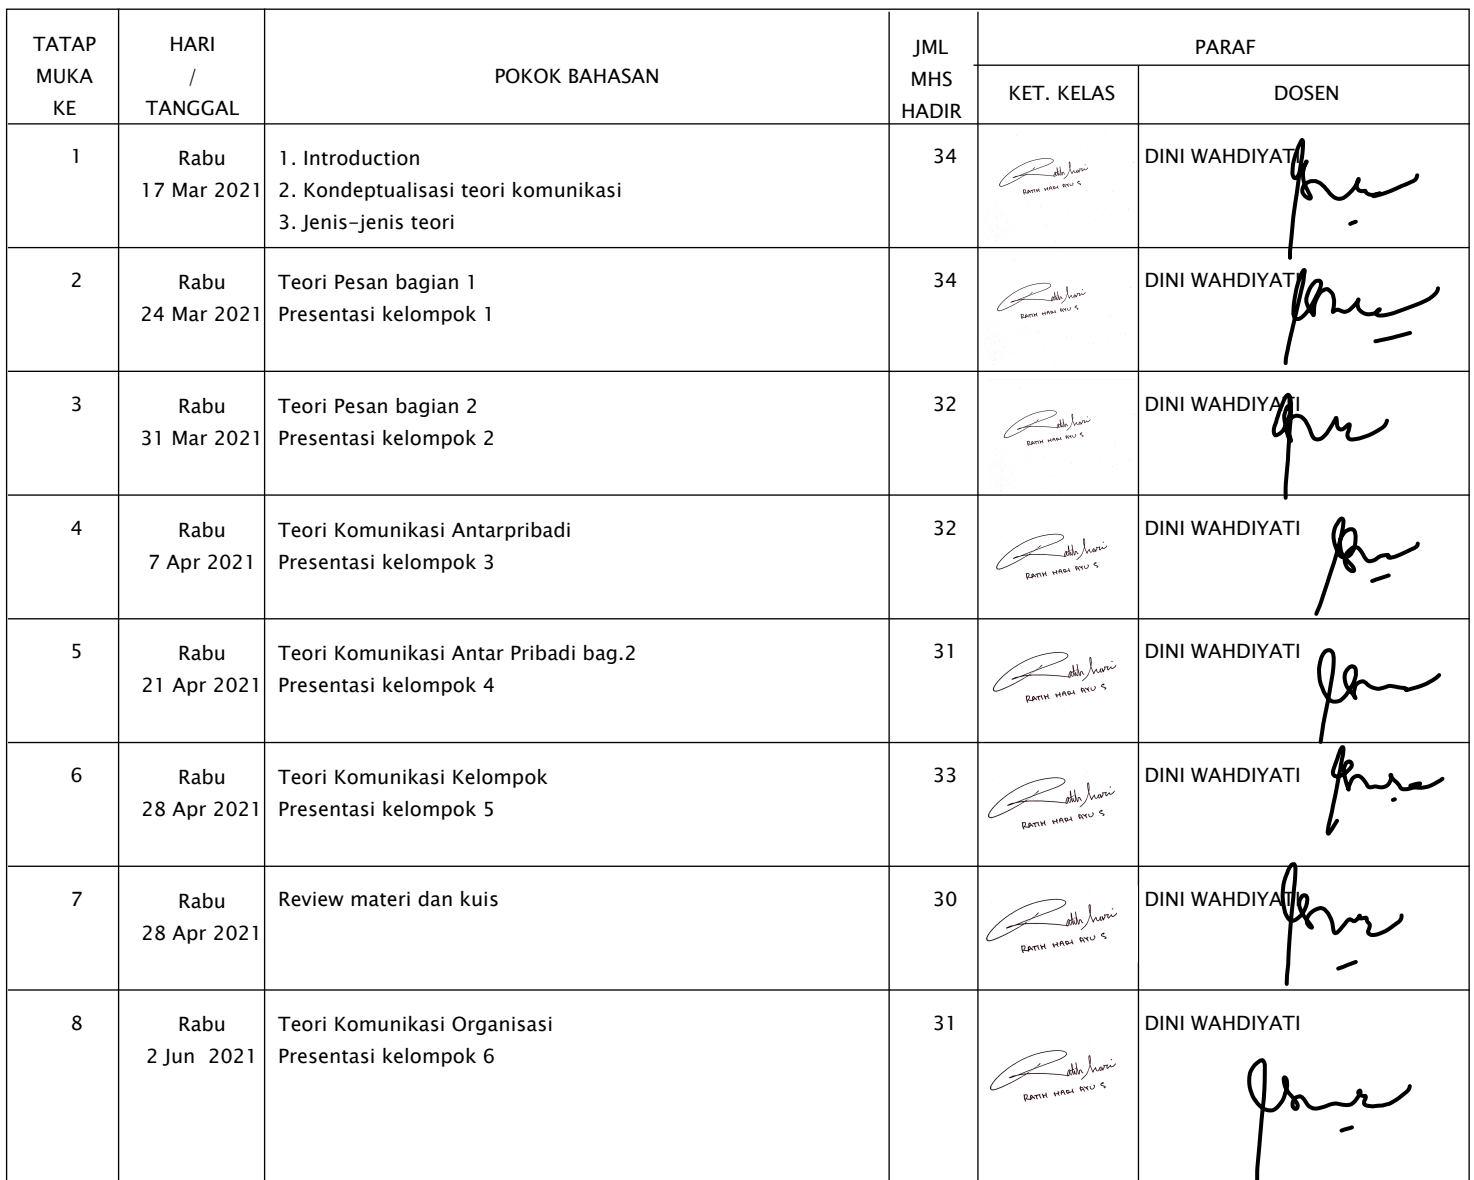 TATAP MUKA KE
HARI / TANGGAL
POKOK BAHASAN
JML MHS HADIR
PARAF
KET. KELAS
DOSEN
1
Rabu
17 Mar 2021
1. Introduction
2. Kondeptualisasi teori komunikasi
3. Jenis-jenis teori
34
Ratih hari
RATIH HARI AYU S
DINI WAHDIYATI
2
Rabu
24 Mar 2021
Teori Pesan bagian 1
Presentasi kelompok 1
34
Ratih hari
RATIH HARI AYU S
DINI WAHDIYATI
3
Rabu
31 Mar 2021
Teori Pesan bagian 2
Presentasi kelompok 2
32
Ratih hari
RATIH HARI AYU S
DINI WAHDIYATI
4
Rabu
7 Apr 2021
Teori Komunikasi Antarpribadi
Presentasi kelompok 3
32
Ratih hari
RATIH HARI AYU S
DINI WAHDIYATI
5
Rabu
21 Apr 2021
Teori Komunikasi Antar Pribadi bag.2
Presentasi kelompok 4
31
Ratih hari
RATIH HARI AYU S
DINI WAHDIYATI
6
Rabu
28 Apr 2021
Teori Komunikasi Kelompok
Presentasi kelompok 5
33
Ratih hari
RATIH HARI AYU S
DINI WAHDIYATI
7
Rabu
28 Apr 2021
Review materi dan kuis
30
Ratih hari
RATIH HARI AYU S
DINI WAHDIYATI
8
Rabu
2 Jun 2021
Teori Komunikasi Organisasi
Presentasi kelompok 6
31
Ratih hari
RATIH HARI AYU S
DINI WAHDIYATI